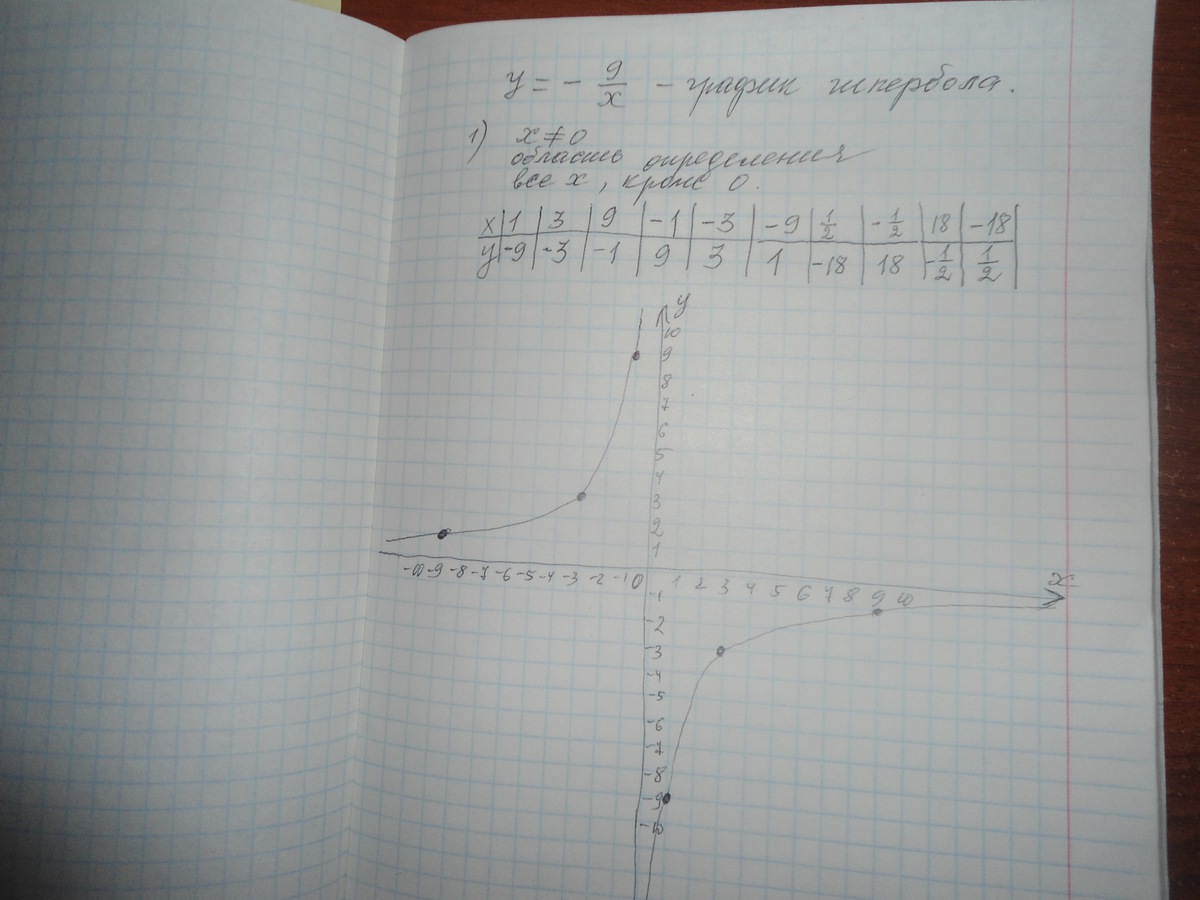 y = - 9/x - график гипербола.
1) x ≠ 0
область определения
все x, кроме 0.
x | 1 | 3 | 9 | -1 | -3 | -9 | 1/2 | -1/2 | 18 | -18 |
y | -9 | -3 | -1 | 9 | 3 | 1 | -18 | 18 | -1/2 | 1/2 |
y
10
9
8
7
6
5
4
3
2
1
-10 -9 -8 -7 -6 -5 -4 -3 -2 -1 0 1 2 3 4 5 6 7 8 9 10 x
-1
-2
3
-4
-5
-6
-7
-8
-9
-10